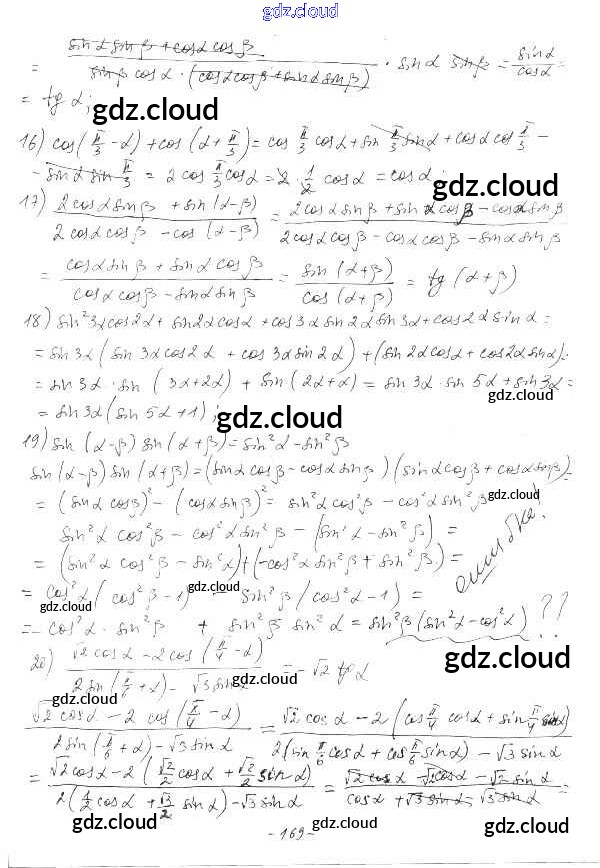 gdz.cloud
= sinα sinβ + cosα cosβ / sinβ cosα · (cosα cosβ + sinα sinβ) · sinα sinβ = sinα / cosα =
= tg α;
gdz.cloud
16) cos(π/3 - α) + cos(α + π/3) = cos π/3 cosα + sin π/3 sinα + cosα cos π/3 -
- sinα sin π/3 = 2 cos π/3 cosα = 2 · 1/2 cosα = cosα;
gdz.cloud
17) 2cosα sinβ + sin(α-β) / 2cosα cosβ - cos(α-β) = 2cosα sinβ + sinα cosβ - cosα sinβ / 2cosα cosβ - cosα cosβ - sinα sinβ
= cosα sinβ + sinα cosβ / cosα cosβ - sinα sinβ = sin(α+β) / cos(α+β) = tg(α+β)
18) sin²3α cos2α + sin2α cosα + cos3α sin2α sin3α + cos2α sinα =
= sin3α (sin3α cos2α + cos3α sin2α) + (sin2α cosα + cos2α sinα) =
= sin3α · sin(3α+2α) + sin(2α+α) = sin3α · sin5α + sin3α =
= sin3α (sin5α + 1);
gdz.cloud
gdz.cloud
19) sin(α-β) sin(α+β) = sin²α - sin²β
sin(α-β) sin(α+β) = (sinα cosβ - cosα sinβ)(sinα cosβ + cosα sinβ) =
= (sinα cosβ)² - (cosα sinβ)² = sin²α cos²β - cos²α sin²β
gdz.cloud
sin²α cos²β - cos²α sin²β - (sin²α - sin²β) =
= (sin²α cos²β - sin²α) + (-cos²α sin²β + sin²β) =
ошибка!
= cos²α (cos²β - 1) - sin²β (cos²α - 1) =
gdz.cloud
gdz.cloud
= - cos²α · sin²β + sin²β sin²α = sin²β (sin²α - cos²α) ??
gdz.cloud
20) √2 cosα - 2cos(π/4 - α) / 2sin(π/6 + α) - √3 sinα = - √2 tgα
gdz.cloud
√2 cosα - 2 cos(π/4 - α) / 2sin(π/6 + α) - √3 sinα = √2 cosα - 2(cos π/4 cosα + sin π/4 sinα) / 2(sin π/6 cosα + cos π/6 sinα) - √3 sinα
= √2 cosα - 2(√2/2 cosα + √2/2 sinα) / 2(1/2 cosα + √3/2 sinα) - √3 sinα = √2 cosα - √2 cosα - √2 sinα / cosα + √3 sinα - √3 sinα =
gdz.cloud
gdz.cloud
- 169 -